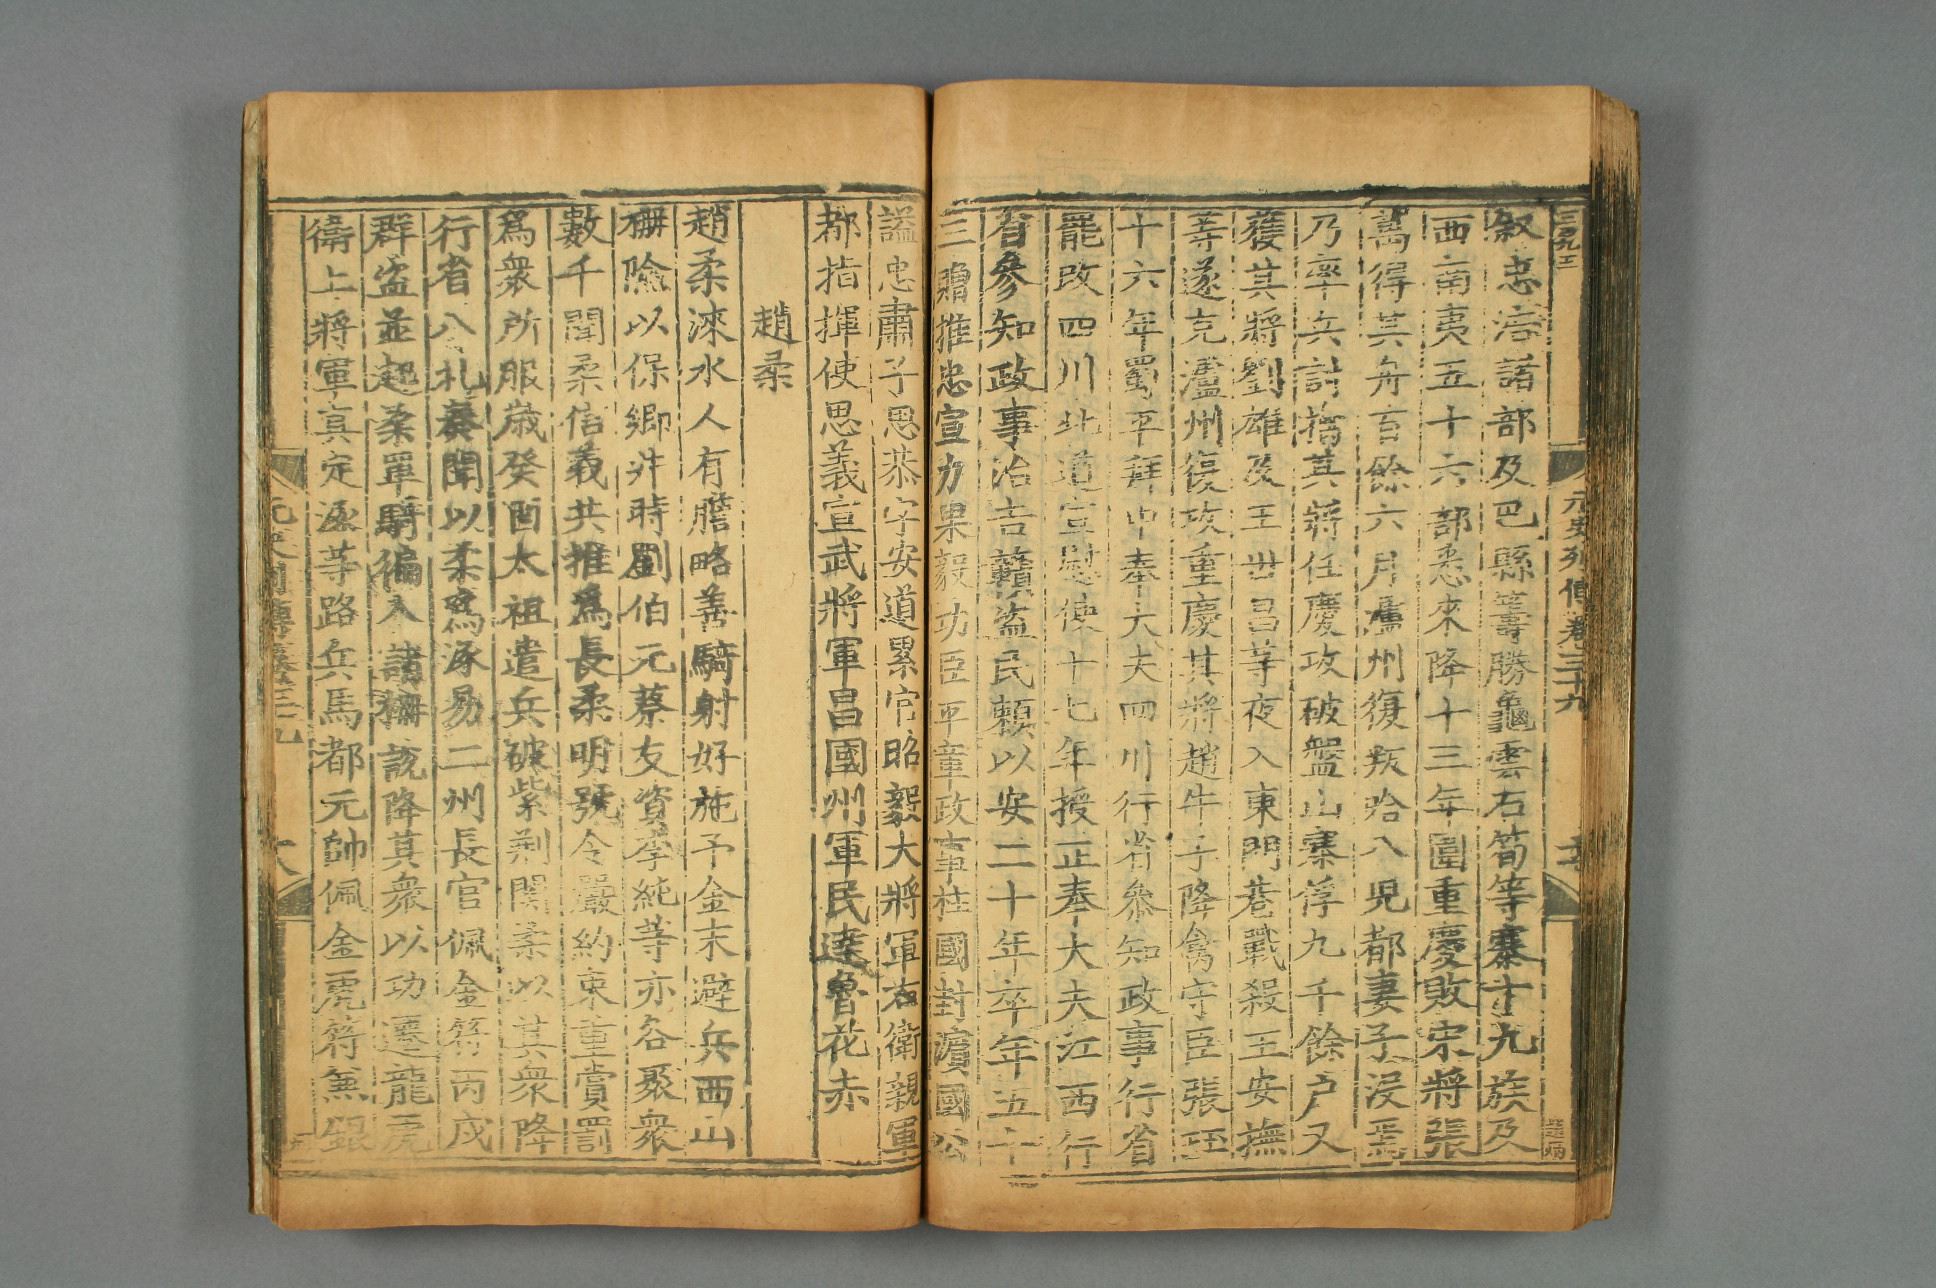 三百九三
元史列傳卷三十九
敘忠浩諸部及巴縣籌勝龜雲石筍等寨十九族及
西南夷五十六部悉來降十三年圍重慶敗宋將張
萬得其舟百餘六月瀘州復叛哈八兒都妻子沒焉
乃率兵討擒其將任慶攻破盤山寨俘九千餘戶又
獲其將劉雄及王世昌等夜入東門巷戰殺王安撫
等遂克瀘州復攻重慶其將趙牛子降禽守臣張珏
十六年蜀平拜中奉大夫四川行省參知政事行省
罷改四川北道宣慰使十七年授正奉大夫江西行
省參知政事治吉贛盜民賴以安二十年卒年五十
三贈推忠宣力果毅功臣平章政事柱國封濵國公
謚忠肅子思恭字安道累官昭毅大將軍右衛親軍
都指揮使思義宣武將軍昌國州軍民達魯花赤
趙柔
趙柔淶水人有膽略善騎射好施予金末避兵西山
柵險以保鄉井時劉伯元蔡友資李純等亦各聚衆
數千聞柔信義共推爲長柔明號令嚴約束重賞罰
爲衆所服歲癸酉太祖遣兵破紫荆關柔以其衆降
行省八札奏聞以柔爲涿易二州長官佩金符丙戌
群盜並起柔單騎徧入諸柵說降其衆以功遷龍虎
衛上將軍真定涿等路兵馬都元帥佩金虎符兼銀
元史列傳卷三十九
十八